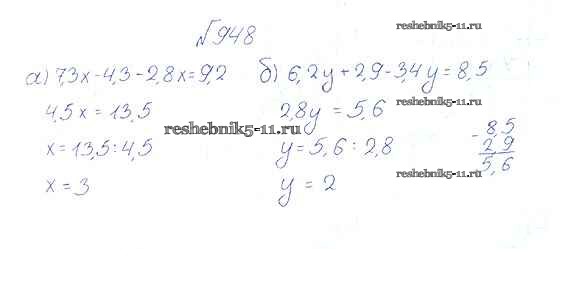 №948
reshebnik5-11.ru
а) 7,3x-4,3-2,8x=9,2 б) 6,2y+2,9-3,4y=8,5
4,5x = 13,5 2,8y = 5,6
reshebnik5-11.ru
x=13,5:4,5 y=5,6:2,8
- 8,5
2,9
5,6
x = 3 y = 2
reshebnik5-11.ru